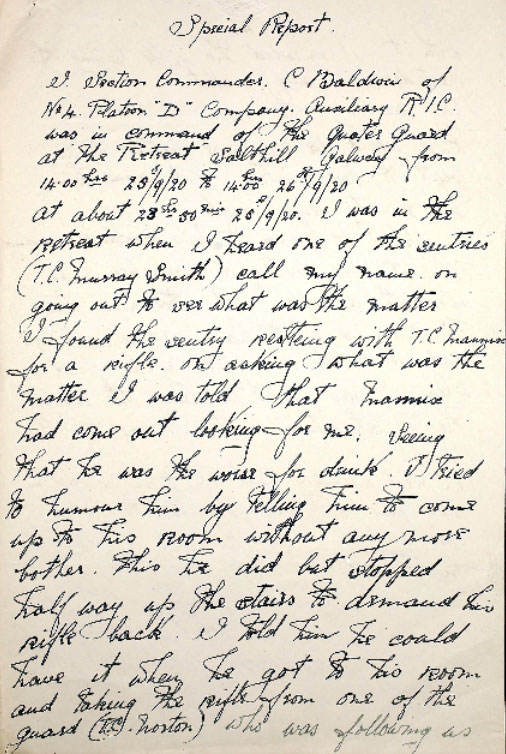 Special Report.
I. Section Commander. C Baldwin of
No 4. Platoon "D" Company. Auxiliary R.I.C.
was in command of the Quater Guard
at "The Retreat" Salthill Galway from
14.00 hrs 25/9/20 to 14.00 hrs 26/9/20
at about 23 hrs 50 mins 25/9/20. I was in the
retreat when I heard one of the sentries
(T.C. Murray Smith) call my name. on
going out to see what was the matter
I found the sentry restling with T.C. Mannix
for a rifle. on asking what was the
matter I was told that Mannix
had come out looking for me. Seeing
that he was the worse for drink. I tried
to humour him by telling him to come
up to his room without any more
bother. This he did but stopped
half way up the stairs to demand his
rifle back. I told him he could
have it when he got to his room
and taking the rifle from one of the
guard (T.C. Norton) who was following us